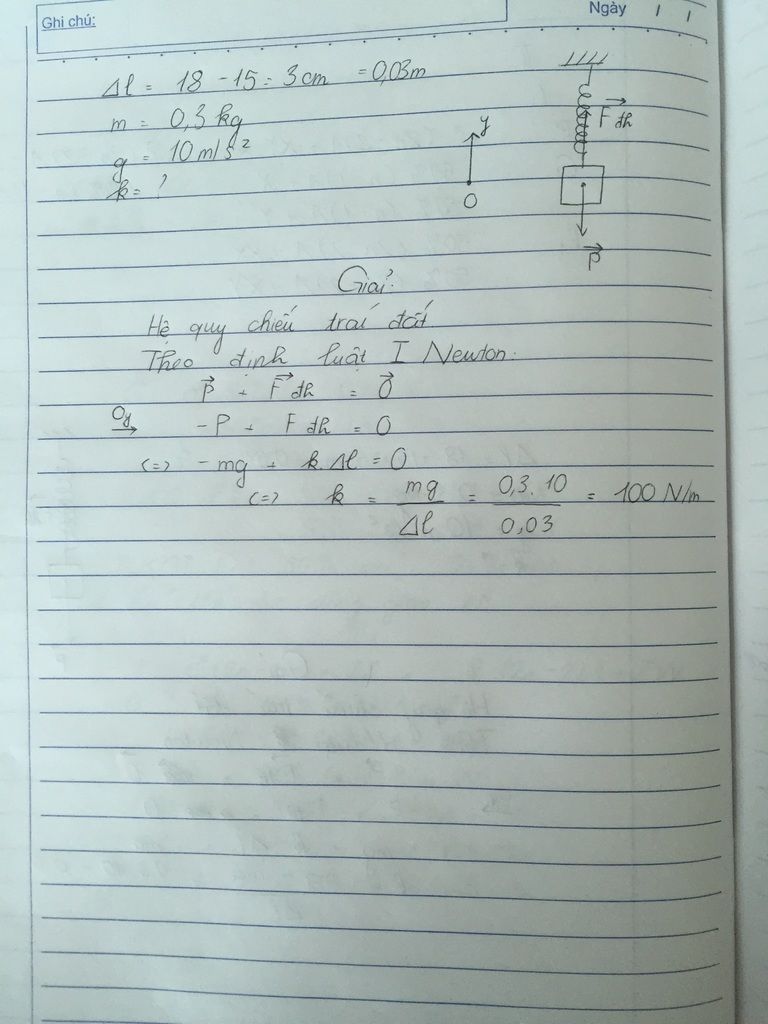 Ghi chú:
Ngày / /
Δl = 18 - 15 = 3 cm = 0,03m
m = 0,3 kg
g = 10 m/s²
k = ?
y
O
F⃗ đh
P⃗
Giải:
Hệ quy chiếu trái đất
Theo định luật I Newton:
P⃗ + F⃗ đh = 0⃗
Oy → -P + F đh = 0
<=> -mg + k.Δl = 0
<=> k = mg/Δl = 0,3.10/0,03 = 100 N/m